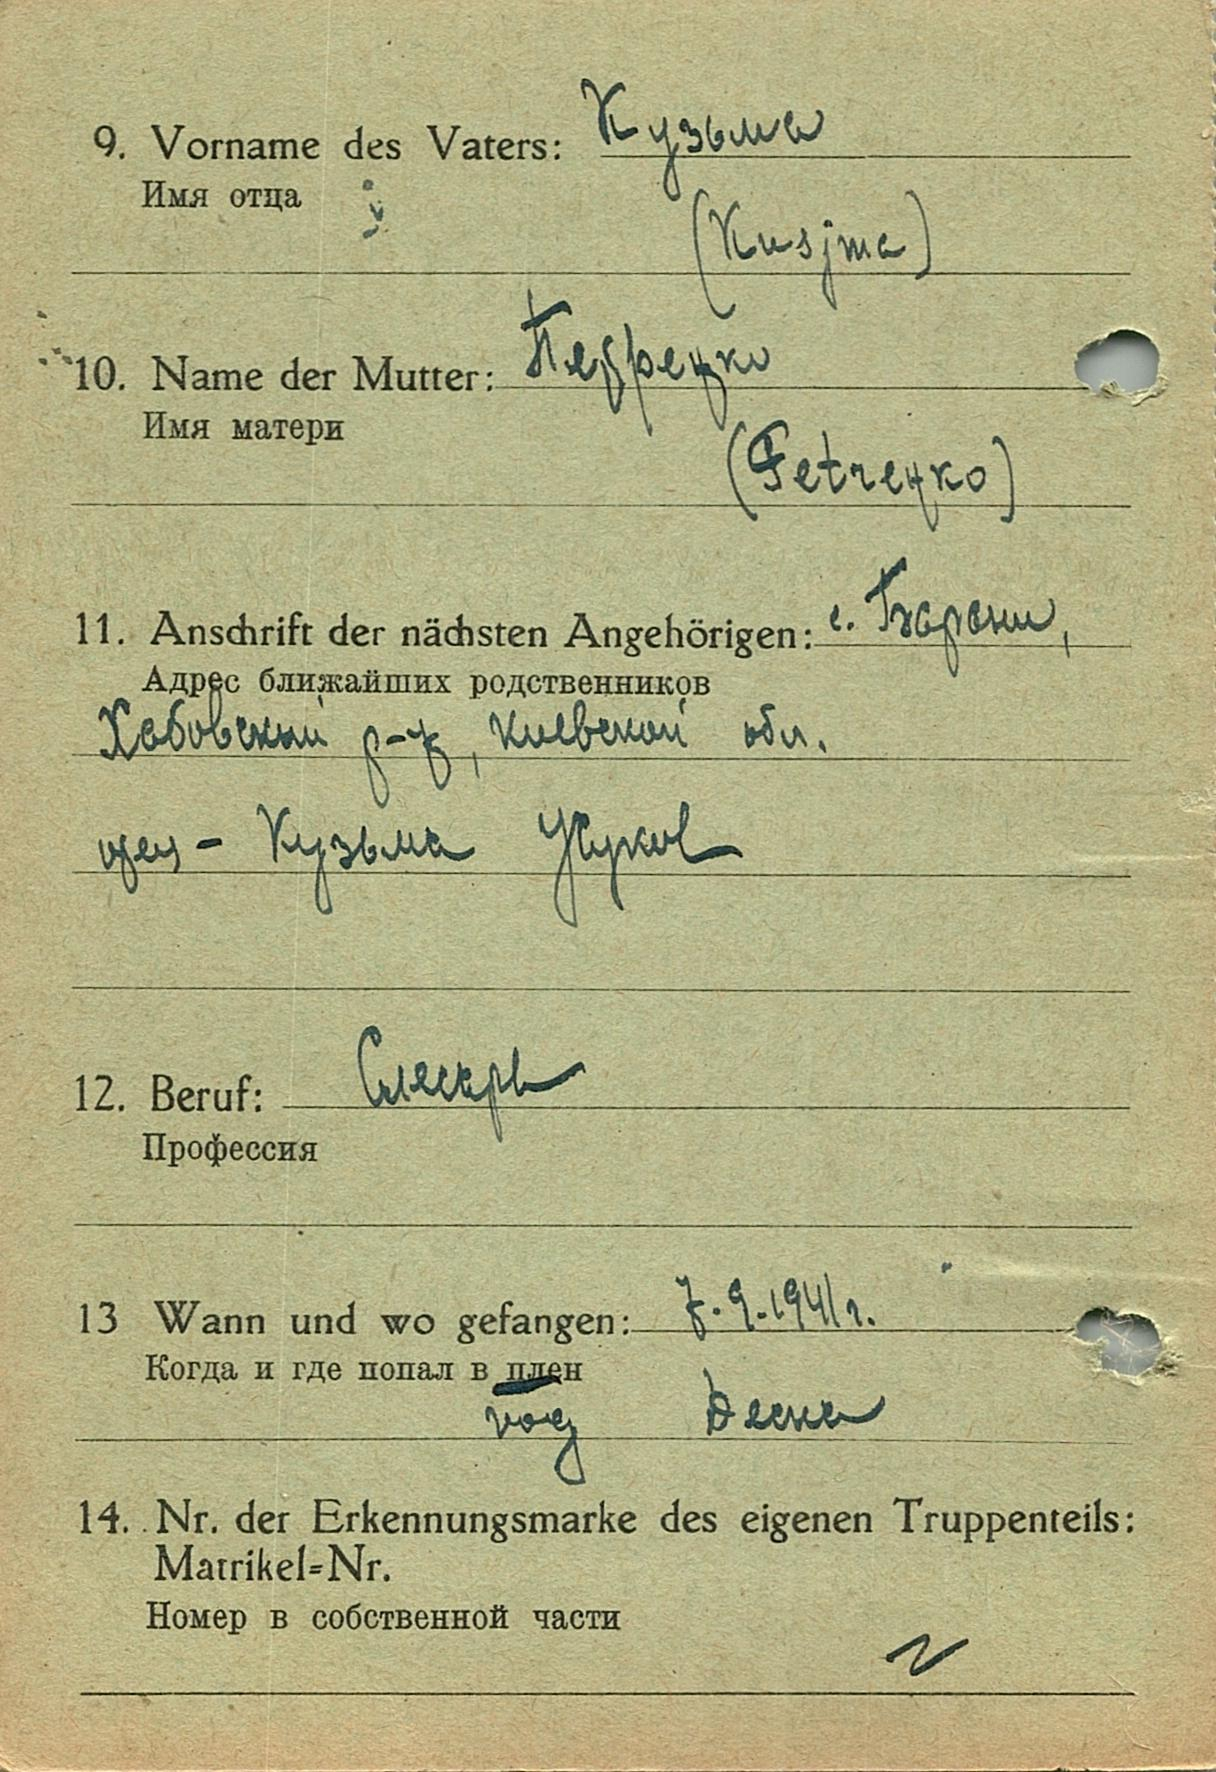 9. Vorname des Vaters: Кузьма
Имя отца
(Kusjma)
10. Name der Mutter: Петреңко
Имя матери
(Petreңко)
11. Anschrift der nächsten Angehörigen: с. Барани,
Адрес ближайших родственников
Хабовский р-н, Киевской обл.
отец – Кузьма
12. Beruf: Слесарь
Профессия
13 Wann und wo gefangen: 7.9.1941 г.
Когда и где попал в плен
под Десна
14. Nr. der Erkennungsmarke des eigenen Truppenteils:
Matrikel=Nr.
Номер в собственной части